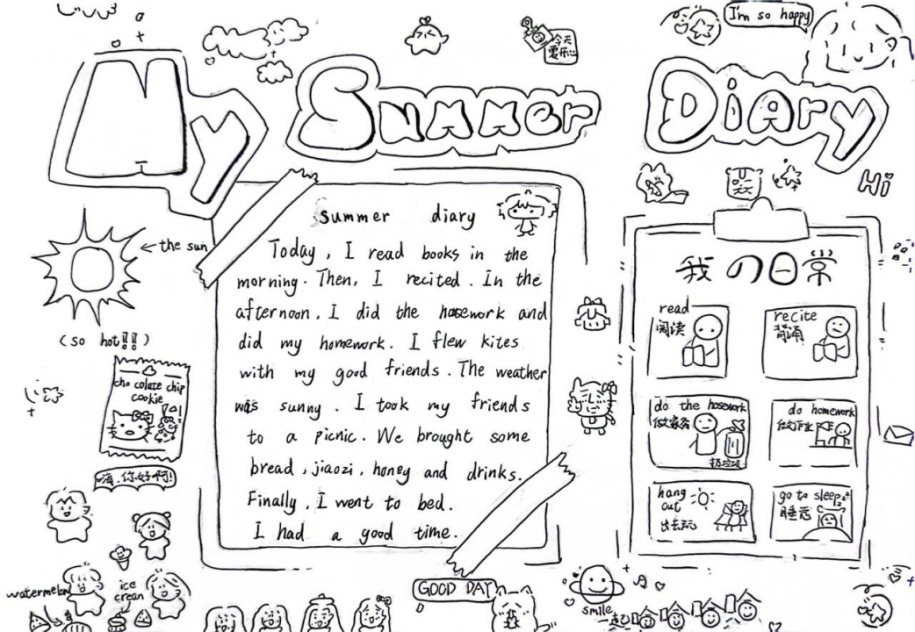 I'm so happy
今天
要开心
My Summer Diary
Hi
summer diary
Today, I read books in the
morning. Then, I recited. In the
afternoon, I did the hosework and
did my homework. I flew kites
with my good friends. The weather
was sunny. I took my friends
to a picnic. We brought some
bread, jiaozi, honey and drinks.
Finally, I went to bed.
I had a good time.
the sun
(so hot!!)
chocolate chip
cookie
嗨,你好啊!
watermelon
ice
crean
GOOD DAY
smile
我の日常
read
阅读
recite
背诵
do the hosework
做家务
扔垃圾
do homework
做作业
hang
out
出去玩
go to sleep
睡觉